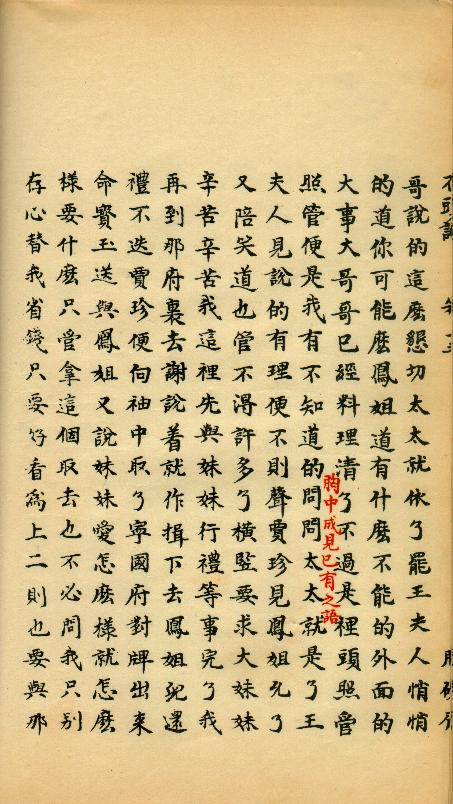 哥說的這麼懇切太太就依了罷王夫人悄悄
的道你可能麼鳳姐道有什麼不能的外面的
大事大哥哥已經料理清了不過是裡頭照管
照管便是我有不知道的問問太太就是了王
胸中成見已有之語
夫人見說的有理便不則聲賈珍見鳳姐允了
又陪笑道也管不得許多了橫豎要求大妹妹
辛苦辛苦我這裡先與妹妹行禮等事完了我
再到那府裏去謝說着就作揖下去鳳姐兒還
禮不迭賈珍便向袖中取了寧國府對牌出來
命寶玉送與鳳姐又說妹妹愛怎麼樣就怎麼
樣要什麼只管拿這個取去也不必問我只別
存心替我省錢只要好看爲上二則也要與那